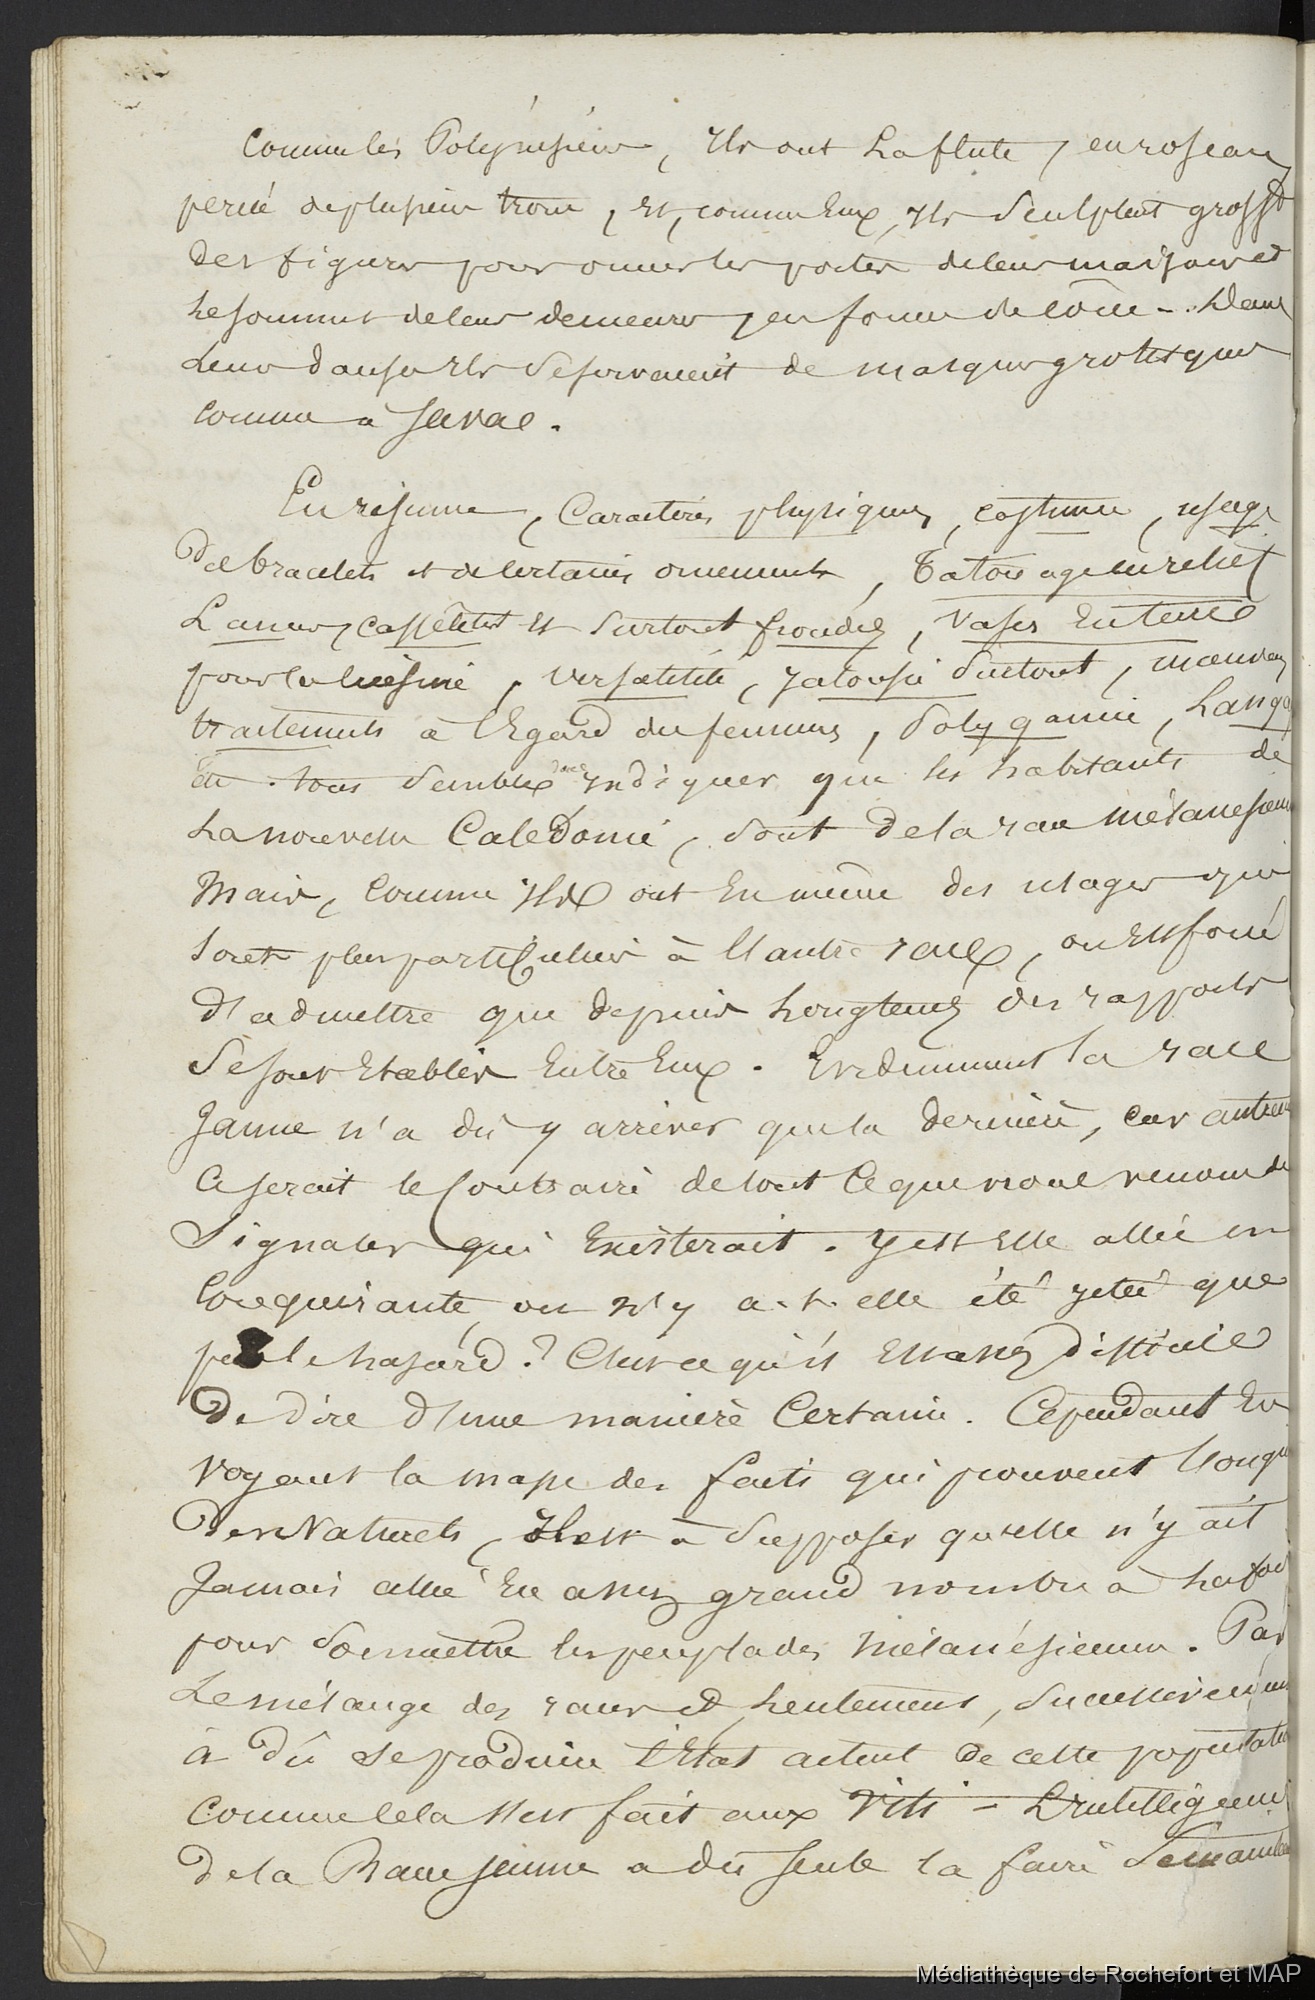 Comme les Polynésiens, Ils ont La flute, en roseau
percé de plusieurs trous, Et, comme Eux, Ils Sculptent grosst
Des figures pour orner les portes de leurs maisons et
Le sommet de leurs demeures, en forme de cône - Dans
Leurs danses Ils Se servaient de masques grotesques
comme à Java.
En résumé, Caractères physiques, costume, usage
De bracelets et de certains ornements, Tatouage en relief
Lances, casse têtes Et Surtout frondes, Vases En terre
pour la cuisine, versatilité, jalousie Surtout, mauvais
traitements à l'Egard des femmes, Polygamie, Langage
tous Semble donc Indiquer que les habitants de
La nouvelle Calédonie, Sont De la race mélanésienne
Mais, Comme Ils ont En même des usages qui
Sont plus particuliers à l'autre race, on Est forcé
D'admettre que depuis Longtems des rapports
Se sont Etablis Entre Eux. Evidemment la race
Jaune n'a dû y arriver que la dernière, car autrement
Ce serait le Contraire de tout Ce que nous venons de
Signaler qui Existerait. Y est Elle allée en
Conquérante ou n'y a-t-elle été jetée que
par le hasard? C'est ce qu'il Est assez difficile
De dire d'une manière Certaine. Cependant En
Voyant la masse des faits qui prouvent l'origine
Des Naturels, Il est à Supposer qu'elle n'y ait
Jamais allée En assez grand nombre à la fois
pour Soumettre les peuplades Mélanésiennes. Par
Le mélange des races et lentement, Successivement
à Dû Se produire l'Etat actuel de cette population
Comme Cela S'est fait aux Viti - L'intelligence
De la Race Jaune a dû Seule la faire